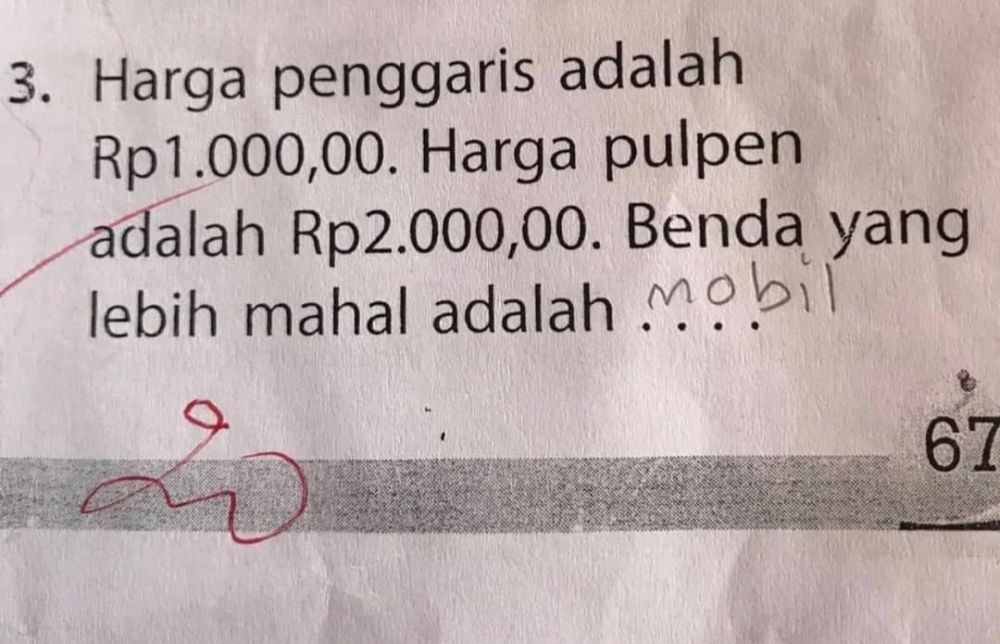 3. Harga penggaris adalah
Rp1.000,00. Harga pulpen
adalah Rp2.000,00. Benda yang
lebih mahal adalah .... mobil
67